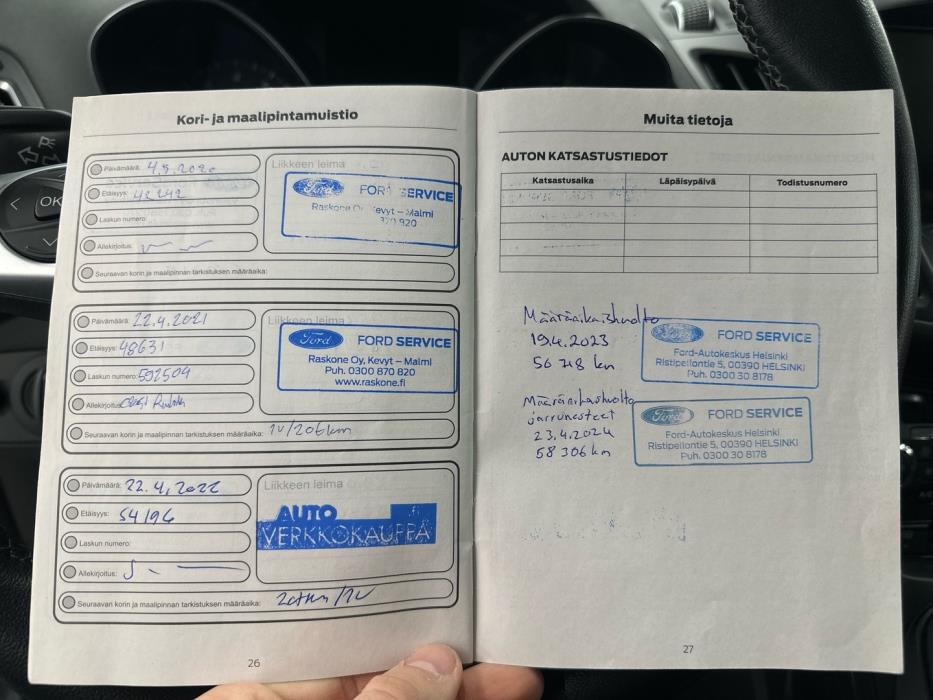 Kori- ja maalipintamuistio
Päivämäärä: 4.5.2020
Etäisyys: 42242
Laskun numero:
Allekirjoitus:
Seuraavan korin ja maalipinnan tarkistuksen määräaika:
Liikkeen leima
Ford FORD SERVICE
Raskone Oy, Kevyt – Malmi
Päivämäärä: 22.4.2021
Etäisyys: 48631
Laskun numero: 592504
Allekirjoitus:
Seuraavan korin ja maalipinnan tarkistuksen määräaika: 1v/20tkm
Liikkeen leima
Ford FORD SERVICE
Raskone Oy, Kevyt – Malmi
Puh. 0300 870 820
www.raskone.fi
Päivämäärä: 22.4.2022
Etäisyys: 54196
Laskun numero:
Allekirjoitus:
Seuraavan korin ja maalipinnan tarkistuksen määräaika: 20tkm/1v
Liikkeen leima
AUTO
VERKKOKAUPPA
26
Muita tietoja
AUTON KATSASTUSTIEDOT
Katsastusaika Läpäisypäivä Todistusnumero
Määräaikaishuolto
19.4.2023
56 718 km
Ford FORD SERVICE
Ford-Autokeskus Helsinki
Ristipellontie 5, 00390 HELSINKI
Puh. 0300 30 8178
Määräaikashuolto
jarrunesteet
23.4.2024
58 306 km
Ford FORD SERVICE
Ford-Autokeskus Helsinki
Ristipellontie 5, 00390 HELSINKI
Puh. 0300 30 8178
27
OK
R